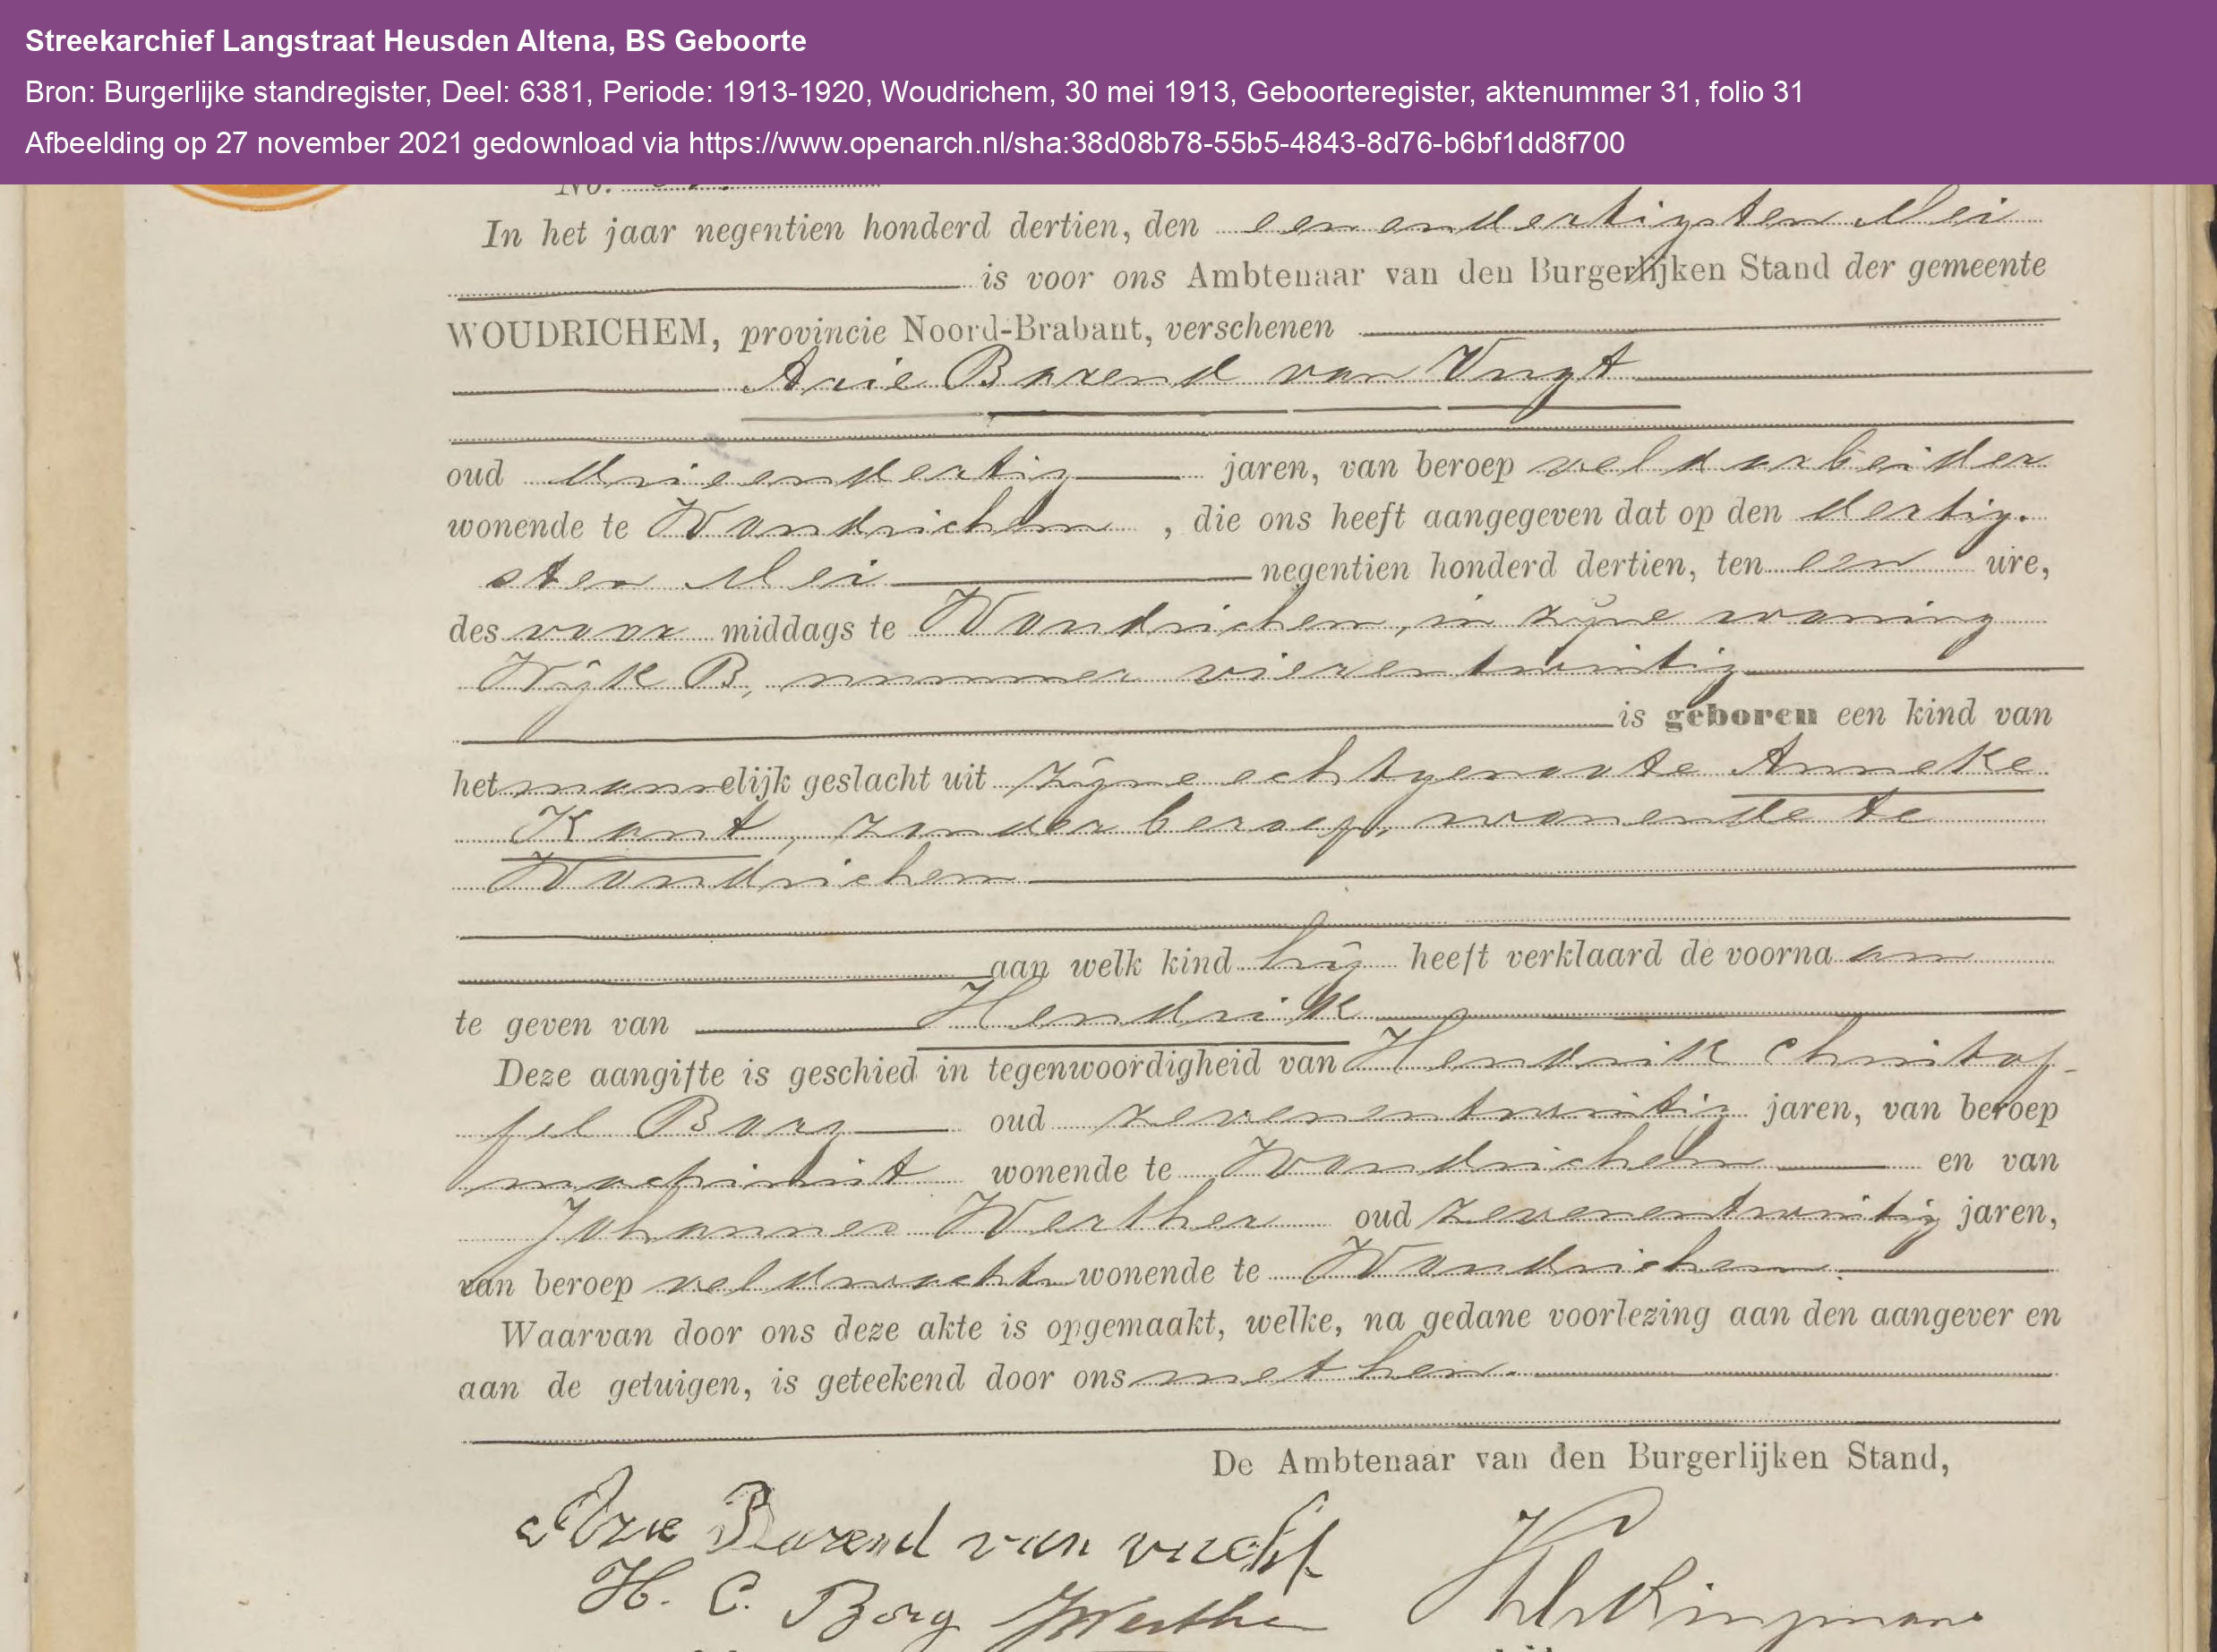 Streekarchief Langstraat Heusden Altena, BS Geboorte
Bron: Burgerlijke standregister, Deel: 6381, Periode: 1913-1920, Woudrichem, 30 mei 1913, Geboorteregister, aktenummer 31, folio 31
Afbeelding op 27 november 2021 gedownload via https://www.openarch.nl/sha:38d08b78-55b5-4843-8d76-b6bf1dd8f700
No.
In het jaar negentien honderd dertien, den eenendertigsten Mei
is voor ons Ambtenaar van den Burgerlijken Stand der gemeente
WOUDRICHEM, provincie Noord-Brabant, verschenen
Arie Barend van Vugt
oud drieendertig jaren, van beroep veldarbeider
wonende te Woudrichem, die ons heeft aangegeven dat op den dertig-
sten Mei negentien honderd dertien, ten een ure,
des voor middags te Woudrichem, in zijne woning
Wijk B, nummer vierentwintig
is geboren een kind van
het mannelijk geslacht uit zijne echtgenoote Anneke
Kant, zonder beroep, wonende te
Woudrichem
aan welk kind hij heeft verklaard de voornaam
te geven van Hendrik
Deze aangifte is geschied in tegenwoordigheid van Hendrik Christof-
fel Borg oud zevenentwintig jaren, van beroep
machinist wonende te Woudrichem en van
Johannes Werther oud zevenentwintig jaren,
van beroep veldwachter wonende te Woudrichem.
Waarvan door ons deze akte is opgemaakt, welke, na gedane voorlezing aan den aangever en
aan de getuigen, is geteekend door ons met hen.
De Ambtenaar van den Burgerlijken Stand,
Arie Barend van vucht
H. C. Borg JWerther